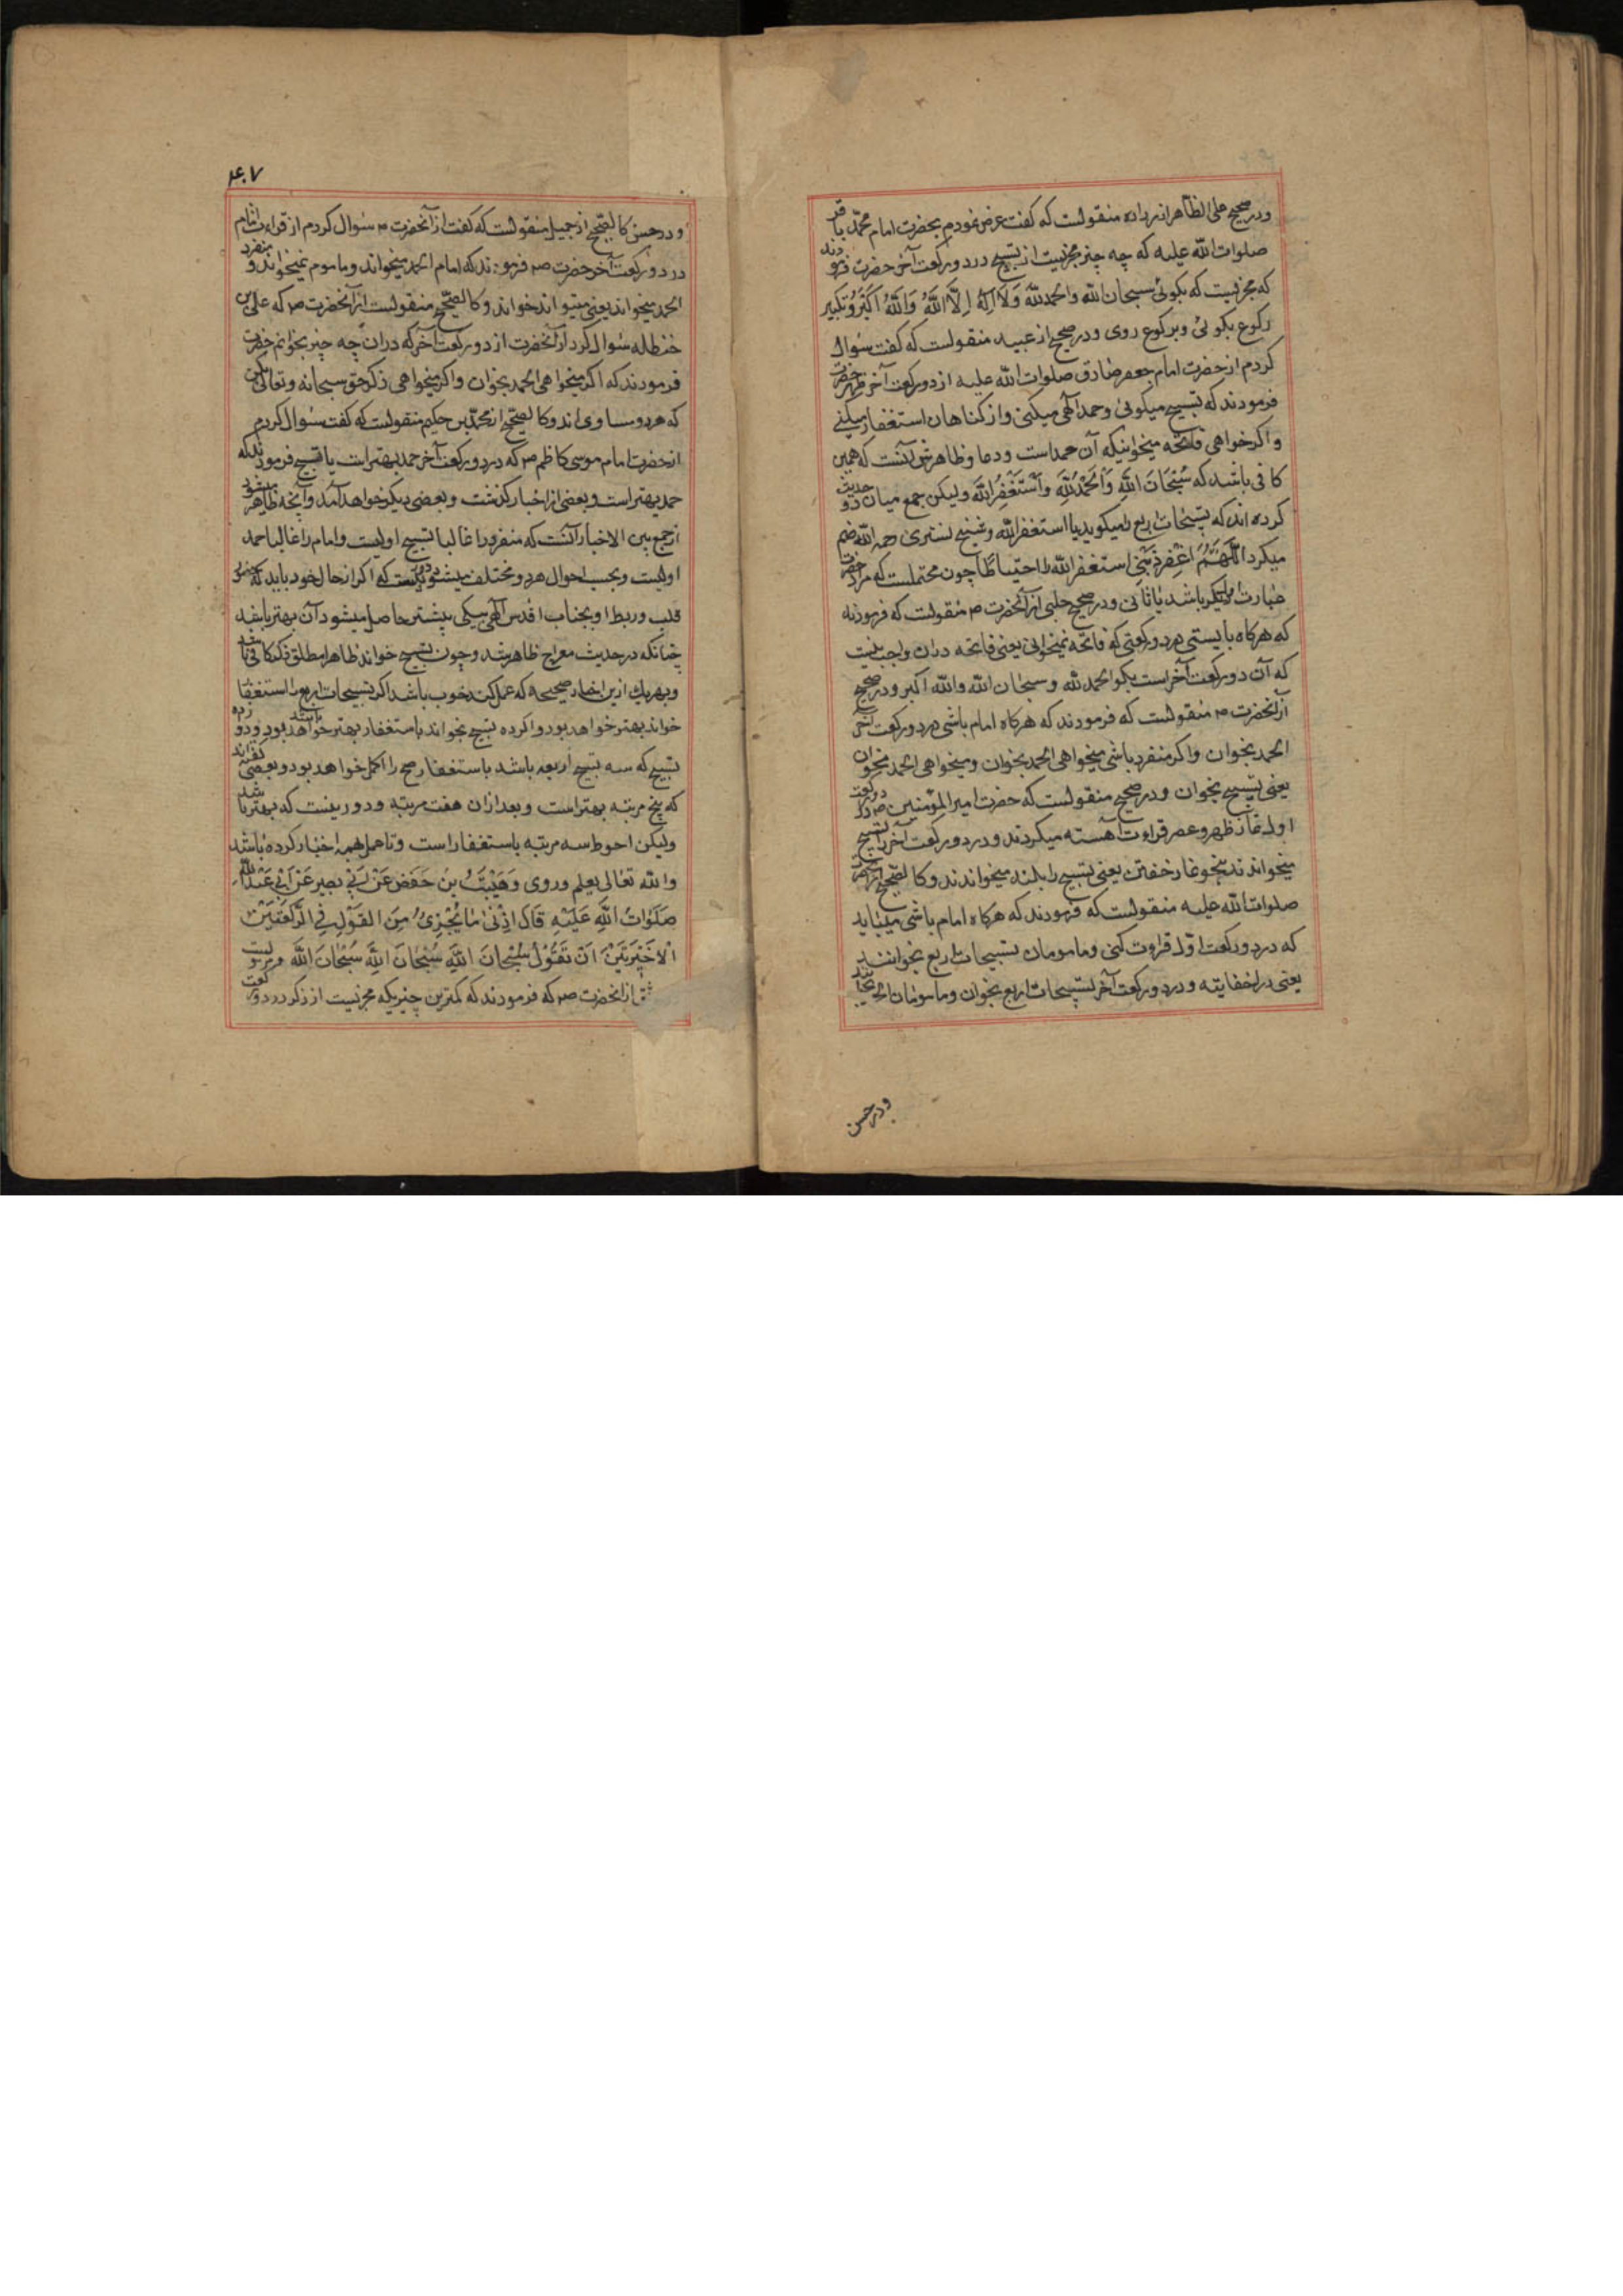 ودر صحیح علی الظاهر از زراره منقولست که گفت عرض نمودم بحضرت امام محمد باقر
صلوات الله علیه که چه چیز مجزیست از تسبیح در دو رکعت آخر حضرت فرمودند
که مجزیست که بگوئی سبحان الله والحمد لله وَلَا اِلَهَ اِلَّا اللَّهُ وَاللَّهُ اَکْبَرُ وتکبیر
رکوع بگوئی وبرکوع روی ودر صحیح از عبید منقولست که گفت سؤال
کردم از حضرت امام جعفر صادق صلوات الله علیه از دو رکعت آخر ظهر حضرت
فرمودند که تسبیح میگوئی وحمد الهی میکنی واز گناهان استغفار میکنی
واگر خواهی فاتحه میخوانی که آن حمد است ودعا وظاهرش آنست که همین
کافی باشد که سُبْحَانَ اللَّهِ وَالْحَمْدُ لِلَّهِ وَاَسْتَغْفِرُ اللَّهَ ولیکن جمع میان دو حدیث
کرده اند که تسبیحات اربع را میگوید با استغفر الله وشیخ تستری رحمه الله ضم
میکرد اللَّهُمَّ اغْفِرْ ذَنْبِی استغفر الله را احتیاطا چون محتملست که مراد حضرت
عبارت دیگر باشد یا ثانی ودر صحیح حلبی از آنحضرت ص منقولست که فرمودند
که هرگاه بایستی در دو رکعتی که فاتحه نمیخوانی یعنی فاتحه در ان واجب نیست
که آن دو رکعت آخر است بگو الحمد لله وسبحان الله والله اکبر ودر صحیح
از آنحضرت ص منقولست که فرمودند که هرگاه امام باشی در دو رکعت آخر
الحمد بخوان واگر منفرد باشی میخواهی الحمد بخوان ومیخواهی الحمد مخوان
یعنی تسبیح بخوان ودر صحیح منقولست که حضرت امیر المؤمنین ص در دو رکعت
اول نماز ظهر وعصر قراءت آهسته میکردند ودر دو رکعت آخر تسبیح
میخواندند بنحو نماز خفتن یعنی تسبیح را بلند میخواندند وکالصحیح از آنحضرت
صلوات الله علیه منقولست که فرمودند که هرگاه امام باشی میباید
که در دو رکعت اول قراءت کنی ومامومان تسبیحات اربع بخوانند
یعنی در اخفاتیه ودر دو رکعت آخر تسبیحات اربع بخوان ومامومان الحمد بخوانند
ودر حسن
۴۰۷
ودر حسن کالصحیح از جمیل منقولست که گفت از آنحضرت ص سؤال کردم از قراءت امام
در دو رکعت آخر حضرت ص فرمودند که امام الحمد میخواند وماموم نمیخواند و منفرد
الحمد میخواند یعنی میتواند خواند وکالصحیح منقولست از آنحضرت ص که علی بن
حنظله سؤال کرد از آنحضرت از دو رکعت آخر که در ان چه چیز بخوانم حضرت
فرمودند که اگر میخواهی الحمد بخوان واگر میخواهی ذکر حق سبحانه وتعالی کن
که هر دو مساوی اند وکالصحیح از محمد بن حکیم منقولست که گفت سؤال کردم
از حضرت امام موسی کاظم ص که در دو رکعت آخر حمد بهتر است یا تسبیح فرمودند که
حمد بهتر است وبعضی از اخبار گذشت وبعضی دیگر خواهد آمد وآنچه ظاهر میشود
از جمع بین الاخبار آنست که منفرد را غالبا تسبیح اولیست وامام را غالبا حمد
اولیست وبحسب احوال هر دو مختلف میشود که اگر از حال خود یابد که حضور
قلب وربط او بجناب اقدس الهی بیکی بیشتر حاصل میشود آن بهتر باشد
چنانکه در حدیث معراج ظاهر شد وچون تسبیح خواند ظاهرا مطلق ذکر کافی باشد
وبهر یك ازین اخبار صحیحه که عمل کند خوب باشد اگر تسبیحات اربع با استغفار
خواند بهتر خواهد بود واگر ده تسبیح بخواند با استغفار بهتر خواهد بود ودوازده
تسبیح که سه تسبیح اربعه باشد با استغفار صح را اکمل خواهد بود وبعضی گفته اند
که پنج مرتبه بهتر است وبعد ازان هفت مرتبه ودور نیست که بهتر باشد
ولیکن احوط سه مرتبه با استغفار است وتا عمل بهمه اخبار کرده باشد
والله تعالی یعلم وروی وُهَیْبُ بن حَفص عَنْ اَبِی بصیر عَنْ اَبِی عَبْدِ اللَّهِ
صَلَوَاتُ اللَّهِ عَلَیْهِ قَالَ اَدْنَی مَا یُجْزِئُ مِنَ القَوْلِ فِی الرَّکْعَتَیْنِ
الْاَخِیرَتَیْنِ اَنْ تَقُولَ سُبْحَانَ اللَّهِ سُبْحَانَ اللَّهِ سُبْحَانَ اللَّهِ مرویست
از آنحضرت ص که فرمودند که کمترین چیزیکه مجزیست از ذکر در دو رکعت